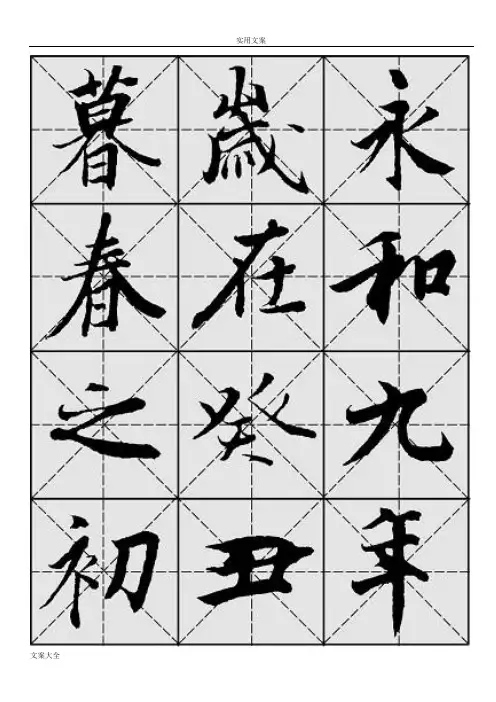 实用文案
永和九年
歲在癸丑
暮春之初
文案大全